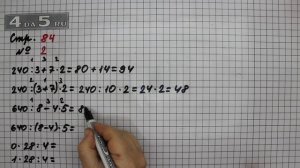 4DA5.RU
Стр. 84
№ 2
1 3 2
240:3+7·2=80+14=94
2 1 3
240:(3+7)·2=240:10·2=24·2=48
1 3 2
640:8-4·5=8
640:(8-4)·5=
0·28:4=
1·28:4=